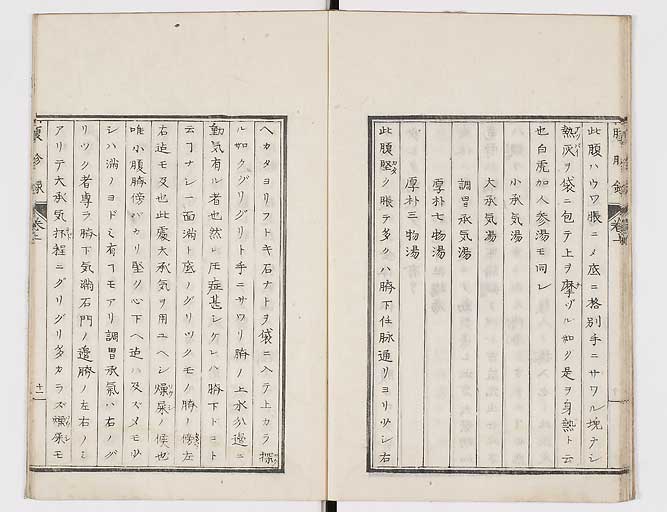 此腹ハウワ脹ニメ底ニ格別手ニサワル塊ナシ
熱灰ヲ袋ニ包テ上ヲ摩ヅル如ク是ヲ身熱ト云
也白虎加人参湯モ同シ
小承気湯
大承気湯
調胃承気湯
厚朴七物湯
厚朴三物湯
此腹堅ク脹テ多クハ臍下任脉通リヨリ少シ右
ヘカタヨリフトキ石ナトヲ袋ニ入テ上カラ探
ル如クグリグリト手ニサワリ臍ノ上水分邊ニ
動気有ル者也然レ𪜈症甚シケレハ臍下ドコト
云ヿナシ一面満ト底ノグリツクモノ臍ノ傍左
右迠モ及也此處大承気ヲ用ユヘシ燥屎ノ候也
唯小腹臍傍バカリ堅ク心下ヘ迠ハ及ズメモ少
シハ満ノヨドミ有ヿモアリ調胃承氣ハ右ノグ
リツク者専ラ臍下気海石門ノ邉臍ノ左右ノミ
アリテ大承気抔程ニグリグリ多カラズ燥屎モ
腹診録
巻之
十一